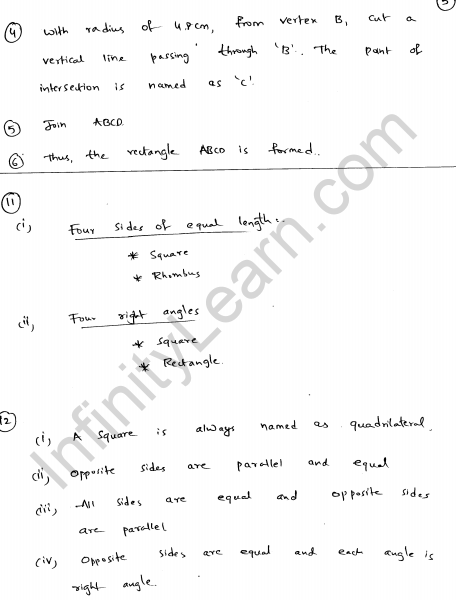 5
4 With radius of 4.8cm, from vertex B, cut a
vertical line passing through 'B'. The point of
intersection is named as 'C'.
5 Join ABCD.
6 Thus, the rectangle ABCD is formed..
11
(i) Four sides of equal length:-
* Square
* Rhombus
(ii) Four right angles
* Square
* Rectangle.
12
(i) A Square is always named as quadrilateral.
(ii) Opposite sides are parallel and equal
(iii) All sides are equal and opposite sides
are parallel
(iv) Opposite sides are equal and each angle is
right angle.
InfinityLearn.com